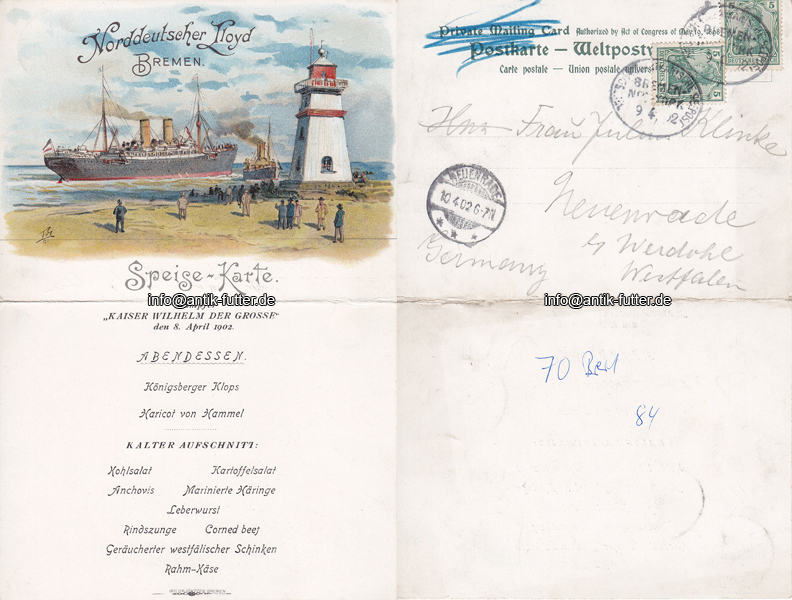 Norddeutscher Lloyd
BREMEN.
Speise-Karte.
info@antik-futter.de
„KAISER WILHELM DER GROSSE“
den 8. April 1902.
ABENDESSEN.
Königsberger Klops
Haricot von Hammel
KALTER AUFSCHNITT:
Kohlsalat Kartoffelsalat
Anchovis Marinierte Häringe
Leberwurst
Rindszunge Corned beef
Geräucherter westfälischer Schinken
Rahm-Käse
Private Mailing Card Authorized by Act of Congress of May 19.
Postkarte — Weltpost
Carte postale — Union postale univers
5
5
BREMEN-
9 4 02
Frau Klinke
NEUENRADE
10.4.02 6-7N
Neuenrade
b/ Werdohl
Germany Westfalen
info@antik-futter.de
70
84